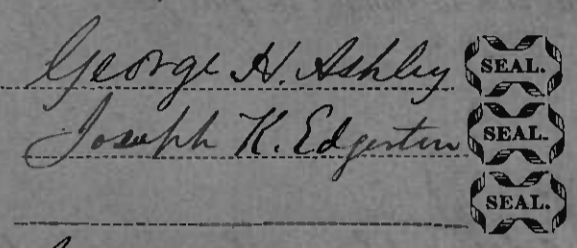 George H. Ashley SEAL.
Joseph K. Edgerton SEAL.
SEAL.